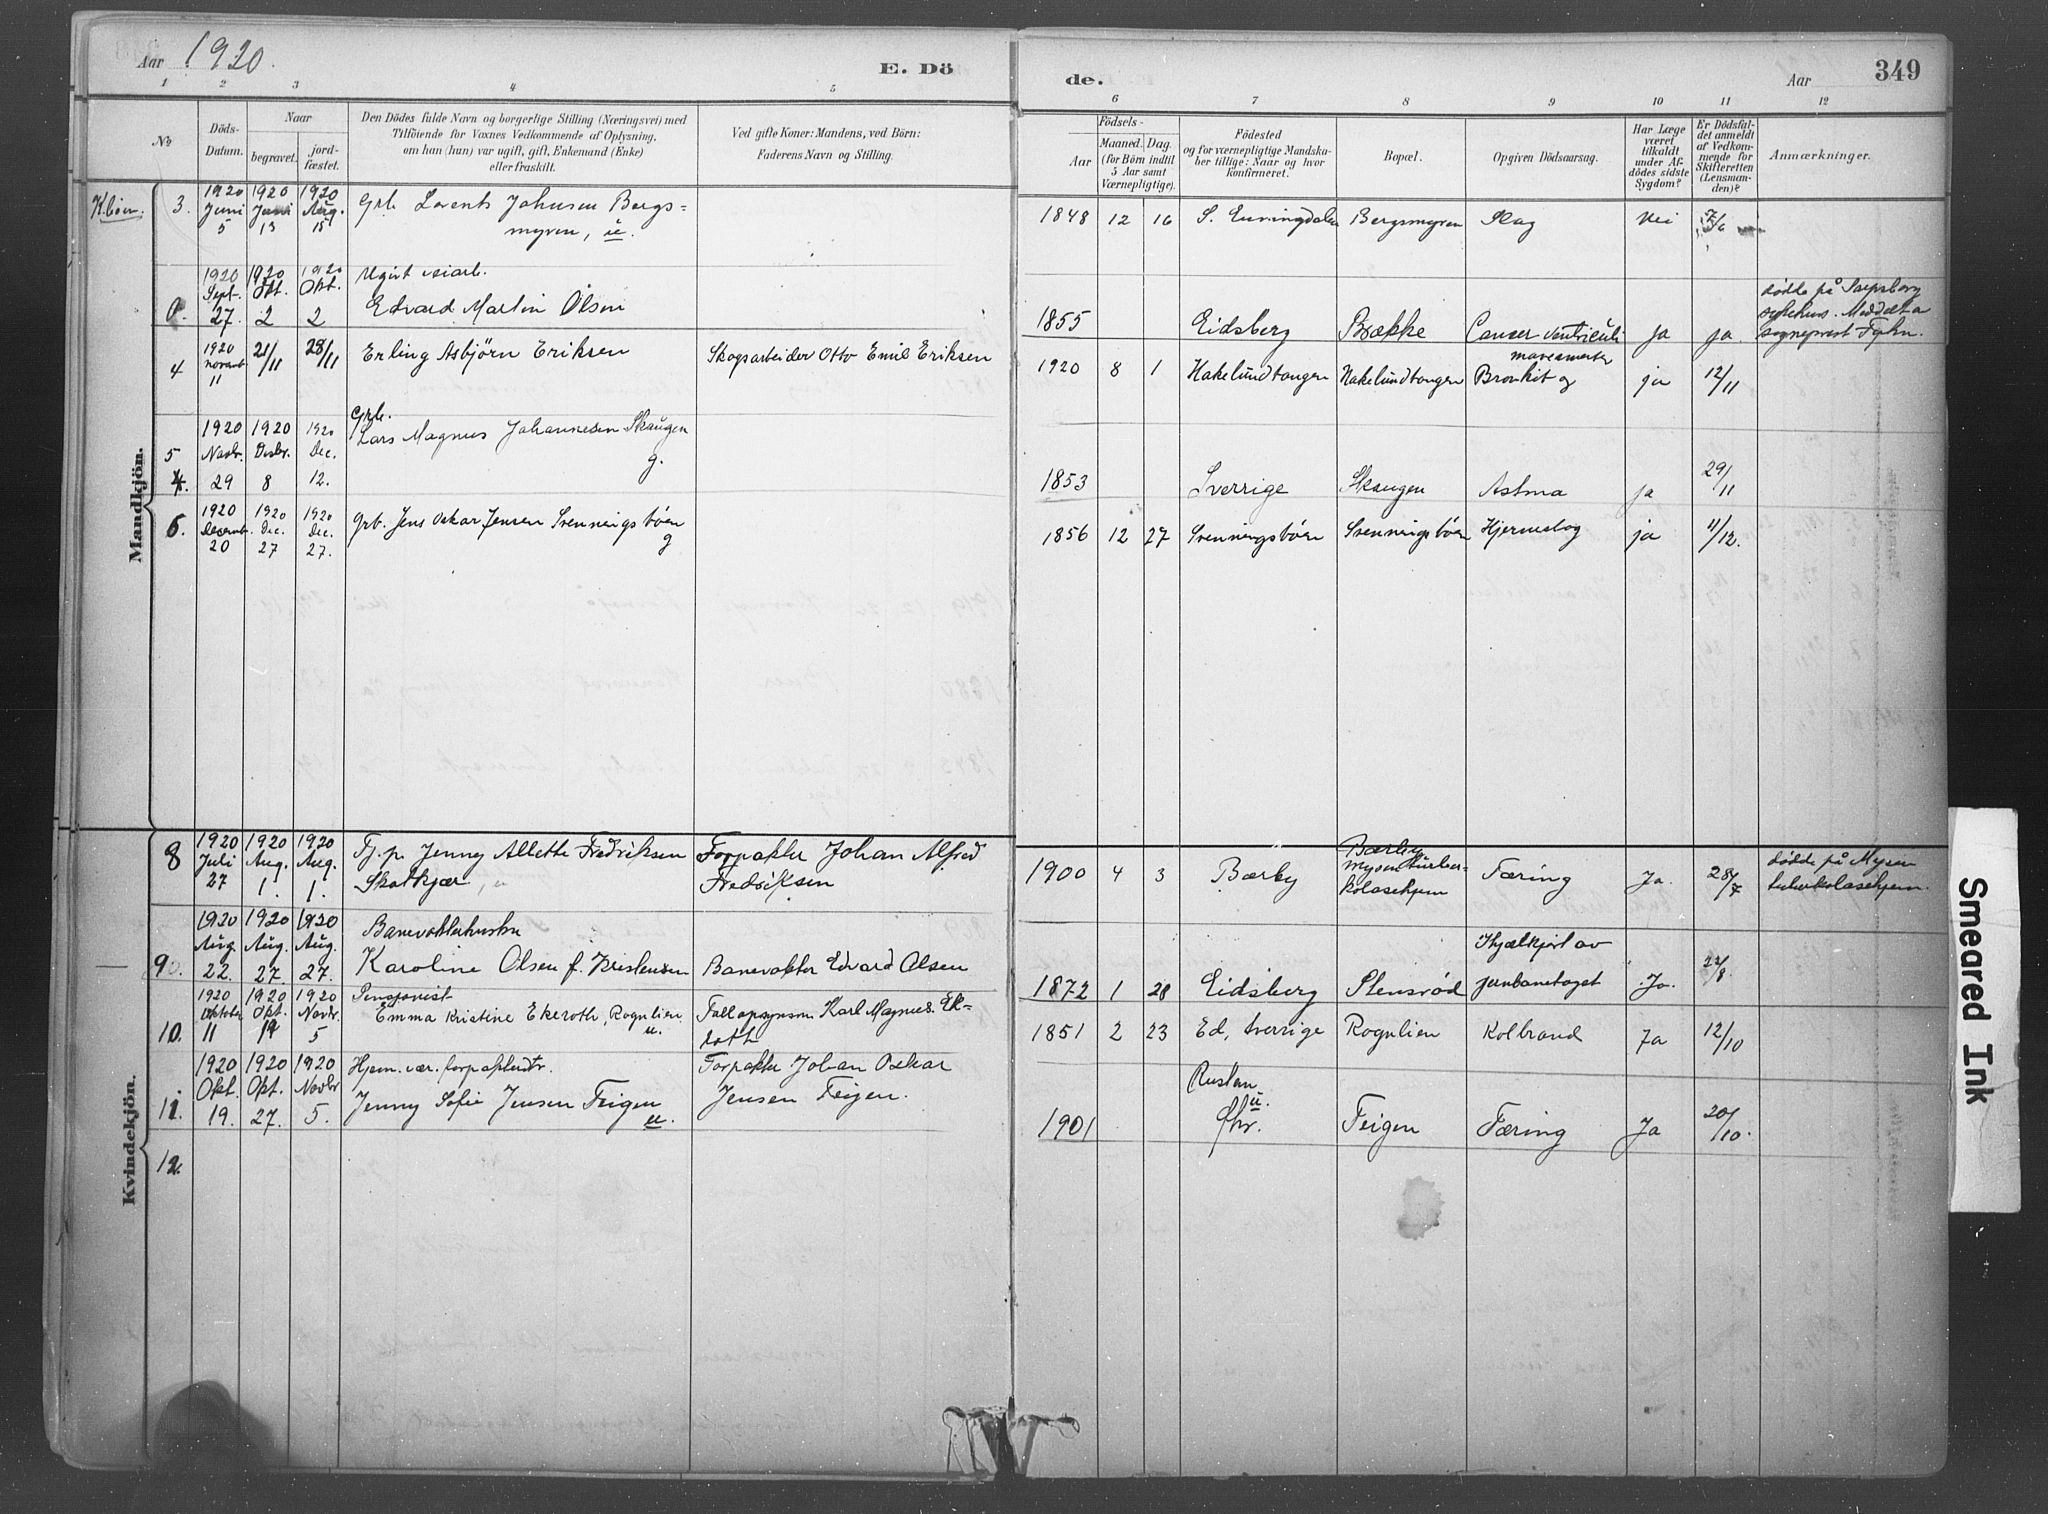 Aar 1920.
E. Dö
de.
Aar
349
1
2
3
4
5
6
7
8
9
10
11
12
No
Döds-
Datum.
Naar
begravet.
jord-
fæstet.
Den Dödes fulde Navn og borgerlige Stilling (Næringsvei) med
Tilföiende for Voxnes Vedkommende af Oplysning,
om han (hun) var ugift, gift, Enkemand (Enke)
eller fraskilt.
Ved gifte Koner: Mandens, ved Börn:
Faderens Navn og Stilling.
Födsels-
Aar
Maaned.
Dag.
(for Börn indtil
5 Aar samt
Værnepligtige).
Födested
og for værnepligtige Mandska-
ber tillige: Naar og hvor
konfirmeret.
Bopæl.
Opgiven Dödsaarsag.
Har Læge
været
tilkaldt
under Af-
dödes sidste
Sygdom?
Er Dödsfal-
det anmeldt
af Vedkom-
mende for
Skifteretten
(Lensman-
den)?
Anmærkninger.
Mandkjön.
3.
1920 1920 1920
Juni Juni Aug.
5 13 15
Grb. Lorents Johnsen Bergs-
myren, u.
1848 12 16 S. Enningdalen Bergsmyren Slag Nei 7/6
1920 1920 1920
Sept. Okt. Okt.
27. 2 2
Ugivt veiarb.
Edvard Martin Olsen
1855 Eidsberg Brække Cancer ventriculi ja ja.
dødde på Sarpsborg
sykehus. Meddelt a
sogneprest
4
1920
novemb.
11
21/11 28/11
Erling Asbjörn Eriksen
Skogsarbeider Otto Emil Eriksen
1920 8 1 Hakelundtangen Hakelundtangen Bronkit og
mavesmerter
ja 12/11
5
4.
1920 1920 1920
Novbr. Desbr. Dec.
29 8 12.
Grb.
Lars Magnus Johannesen Skaugen
g.
1853 Sverrige Skaugen Astma ja 29/11
6.
1920 1920 1920
Decemb. Dec. Dec.
20 27 27.
Grb. Jens Oskar Jensen Svenningsbøen
g
1856 12 27 Svenningsbøen Svenningsbøen Hjerneslag ja 4/12.
Kvindekjön.
8
1920 1920 1920
Juli Aug. Aug.
27 1. 1.
Tj. p. Jenny Allette Fredriksen
Skotkjær, u
Forpakter Johan Alfred
Fredriksen
1900 4 3 Bærby
Bærby
Mysen turber-
kolosehjem
Tæring Ja. 28/7
dødde på Mysen
tuberkolosehjem.
9
1920 1920 1920
Aug. Aug. Aug.
22. 27. 27.
Banevokterhustru
Karoline Olsen f. Kristensen
Banevokter Edvard Olsen
1872 1 28 Eidsberg Stensrød
Ihjælkjørt av
jernbanetoget
Ja. 22/8
10.
1920 1920 1920
Oktober Okt. Novbr.
11 19 5
Pensjonist
Emma Kristine Ekeroth, Rognlien
u.
Tollopsynsm. Karl Magnus Ek-
roth
1851 2 23 Ed, Sverrige Rognlien Kolbrand Ja 12/10
11.
1920 1920 1920
Okt. Okt. Novbr
19. 27. 5.
Hjem. vær. forpakterdtr.
Jenny Sofie Jensen Feigen
u.
Forpakter Johan Oskar
Jensen Feigen.
1901 Feigen Tæring Ja 20/10.
12.
Smeared Ink